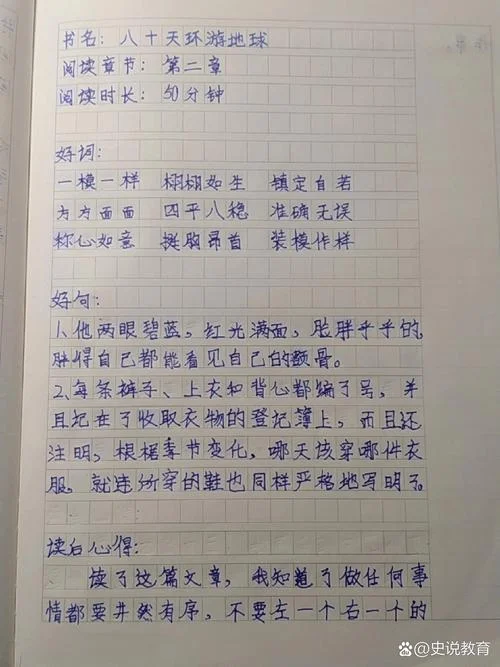 书名：八十天环游地球
阅读章节：第二章
阅读时长：50分钟
好词：
一模一样 栩栩如生 镇定自若
方方面面 四平八稳 准确无误
称心如意 挺胸昂首 装模作样
好句：
1、他两眼碧蓝，红光满面，脸胖乎乎的，
胖得自己都能看见自己的颧骨。
2、每条裤子、上衣和背心都编了号，并
且记在了收取衣物的登记簿上，而且还
注明，根据季节变化，哪天该穿哪件衣
服，就连所穿的鞋也同样严格地写明了。
读后心得：
读了这篇文章，我知道了做任何事
情都要井然有序，不要左一个右一个的
@史说教育